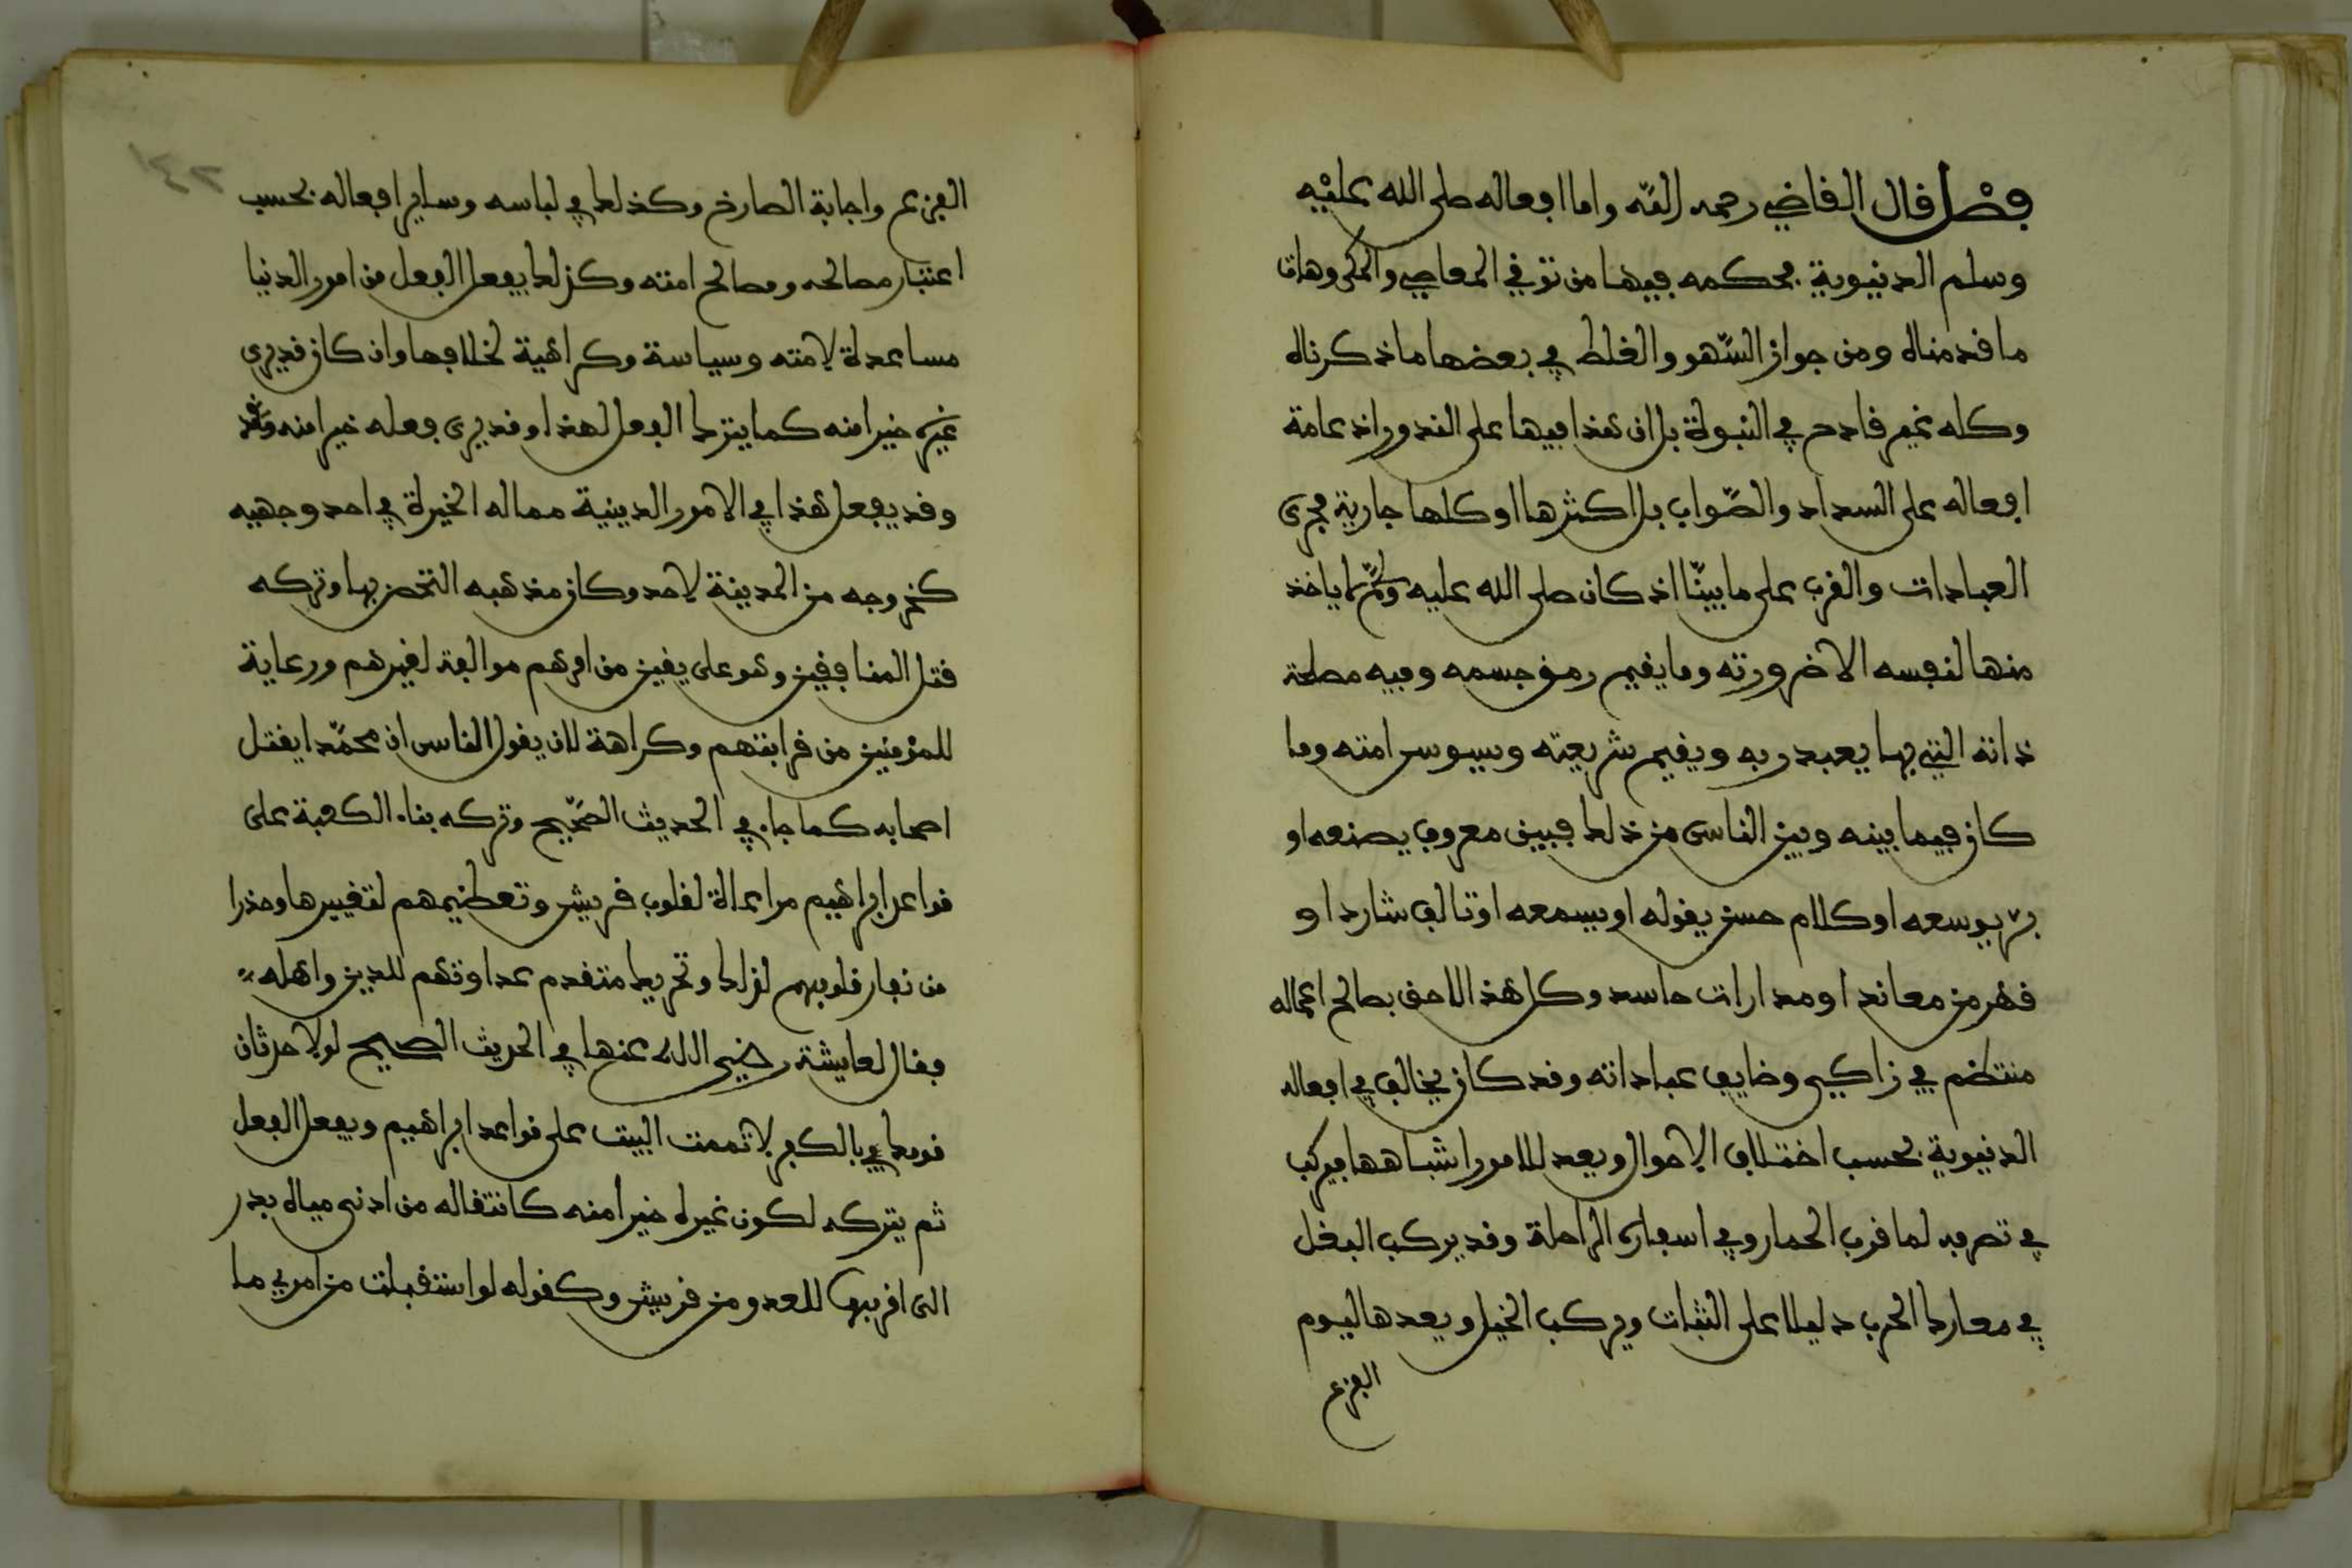 فصل قال القاضي رحمه الله واما افعاله صلى الله عليه
وسلم الدنيوية فحكمه فيها من توقي المعاصي والمكروهات
ما قدمناه ومن جواز السّهو والغلط في بعضها ما ذكرناه
وكله غير قادح في النبوة بل ان هذا فيها على الندور اذ عامة
افعاله على السداد والصّواب بل اكثرها او كلها جارية مجرى
العبادات والقرب على ما بيّنّا اذ كان صلى الله عليه وسلم لا ياخذ
منها لنفسه الا ضرورته وما يقيم رمق جسمه وفيه مصلحة
ذاته التي بها يعبد ربه ويقيم شريعته ويسوس امته وما
كان فيما بينه وبين الناس من ذلك فبين معروف يصنعه او
بر يوسعه او كلام حسن يقوله او يسمعه او تالف شارد او
قهر من معاند او مدارات حاسد وكل هذا لاحق بصالح اعماله
منتظم في زاكي وضايف عباداته وقد كان يخالف في افعاله
الدنيوية بحسب اختلاف الاحوال ويعد للامور اشباهها فيركب
في تصرفه لما قرب الحمار وفي اسفاره الراحلة وقد يركب البغل
في معارك الحرب دليلا على الثبات ويركب الخيل ويعدها ليوم
الفزع
١٤٢
الفزع واجابة الصارخ وكذلك في لباسه وساير افعاله بحسب
اعتبار مصالحه ومصالح امته وكذلك يفعل الفعل من امور الدنيا
مساعدة لامته وسياسة وكراهية لخلافها وان كان قد يرى
غيره خيرا منه كما يترك الفعل لهذا وقد يرى فعله خيرا منه
وقد يفعل هذا في الامور الدينية مما له الخيرة في احد وجهيه
كخروجه من المدينة لاحد وكان مذهبه التحصن بها وتركه
قتل المنافقين وهو على يقين من امرهم موالفة لغيرهم ورعاية
للمؤمنين من قرابتهم وكراهة لان يقول الناس ان محمّدا يقتل
اصحابه كما جاء في الحديث الصّحيح وتركه بناء الكعبة على
قواعد ابراهيم مراعاة لقلوب قريش وتعظيمهم لتغييرها وحذرا
من نفار قلوبهم لذلك وتحريك متقدم عداوتهم للدين واهله
فقال لعايشة رضي الله عنها في الحديث الصحيح لولا حدثان
قومك بالكفر لاتممت البيت على قواعد ابراهيم ويفعل الفعل
ثم يتركه لكون غيره خيرا منه كانتقاله من ادنى مياه بدر
الى اقربها للعدو من قريش وكقوله لو استقبلت من امري ما